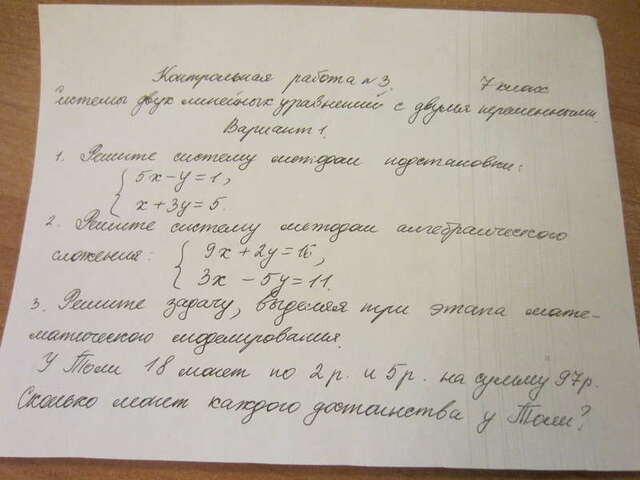 Контрольная работа №3. 7 класс
Системы двух линейных уравнений с двумя переменными.
Вариант 1.
1. Решите систему методом подстановки:
{ 5x - y = 1,
x + 3y = 5.
2. Решите систему методом алгебраического
сложения: { 9x + 2y = 16,
3x - 5y = 11.
3. Решите задачу, выделяя три этапа мате-
матического моделирования.
У Толи 18 монет по 2 р. и 5 р. на сумму 97 р.
Сколько монет каждого достоинства у Толи?